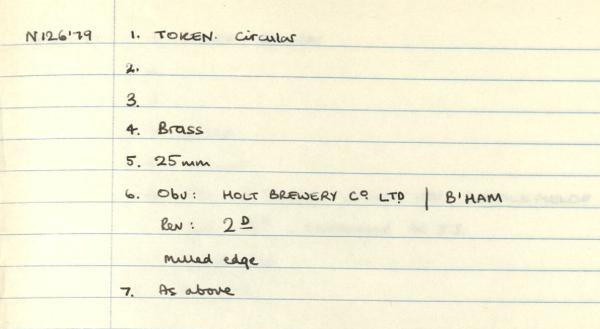 N126'79 1. TOKEN. Circular
2.
3.
4. Brass
5. 25mm
6. Obv: HOLT BREWERY Cº LTD | B'HAM
Rev: 2 D
Milled edge
7. As above